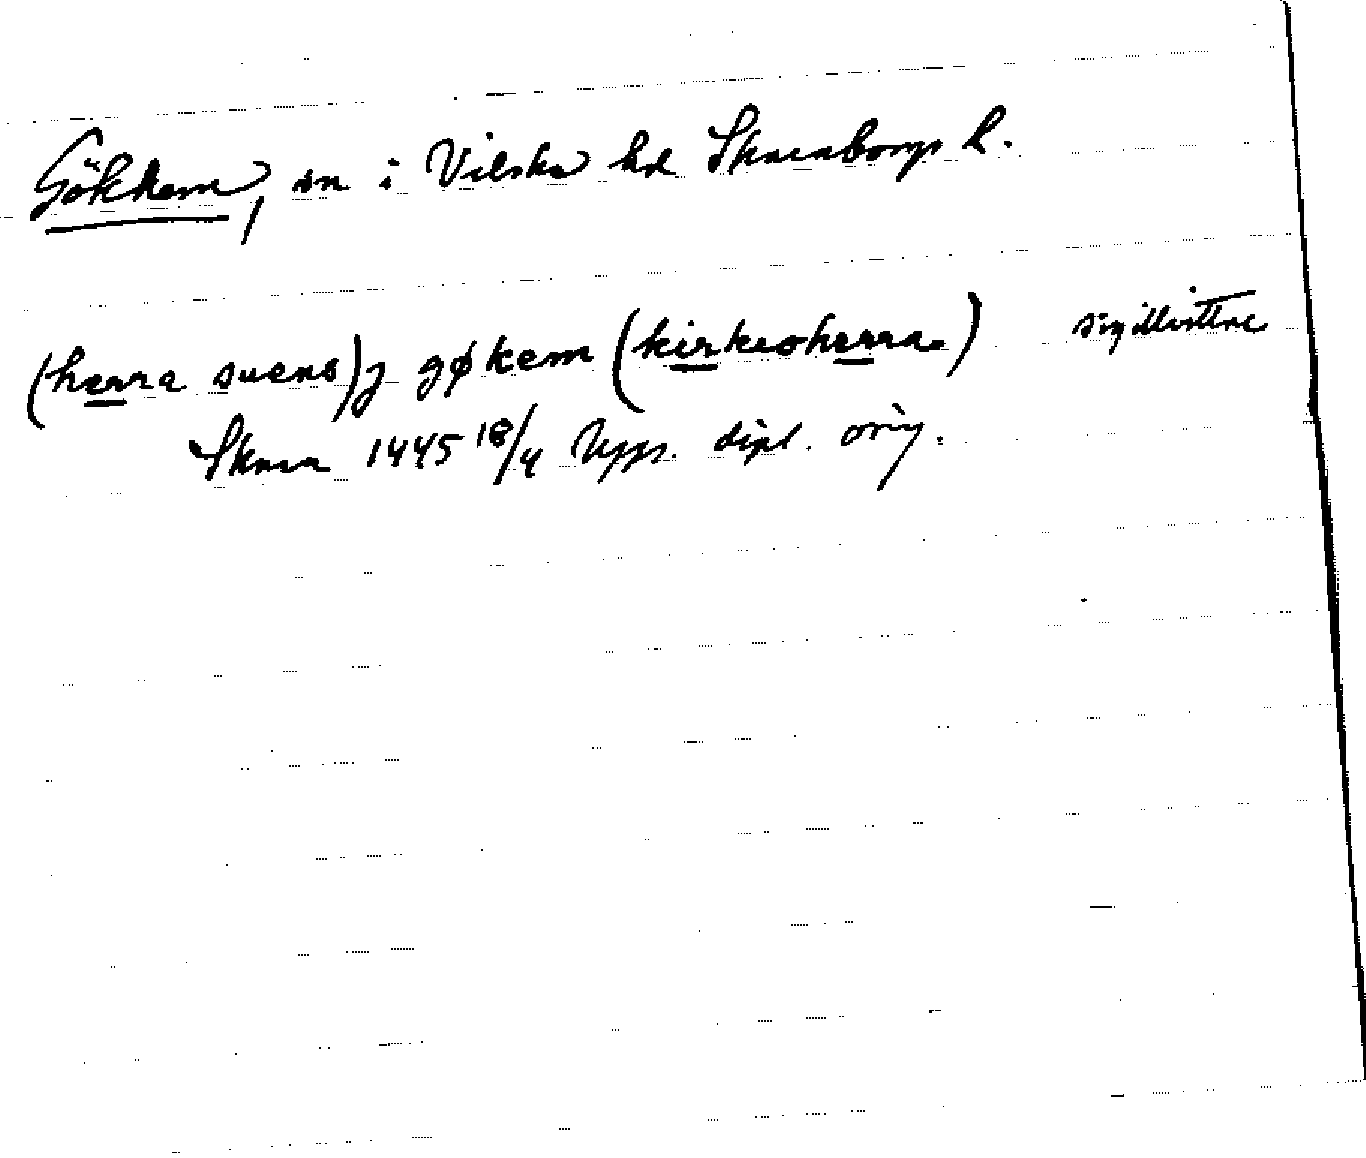 Gökhem, sn i Vilske hd Skaraborgs l.
(herra suens) j gøkem (kirkioherra.) sigillvittne
Skara 1445 18/4 Upps. dipl. orig.